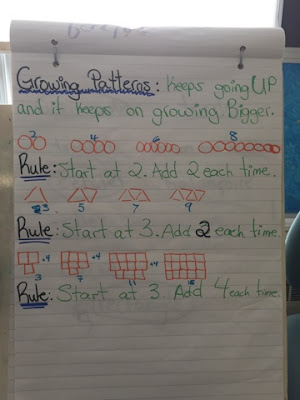 Growing Patterns: Keeps going UP
and it keeps on growing Bigger.
2 4 6 8
Rule: Start at 2. Add 2 each time.
3 5 7 9
Rule: Start at 3. Add 2 each time.
+4 +4 +4
3 7 11 15
Rule: Start at 3. Add 4 each time.